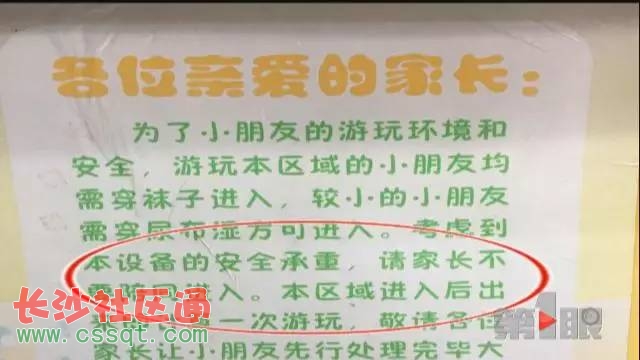 各位亲爱的家长：
为了小朋友的游玩环境和
安全，游玩本区域的小朋友均
需穿袜子进入，较小的小朋友
需穿尿布湿方可进入。考虑到
本设备的安全承重，请家长不
进入。本区域进入后出
一次游玩，敬请各位
家长让小朋友先行处理完毕大
长沙社区通
www.cssqt.com
第1眼